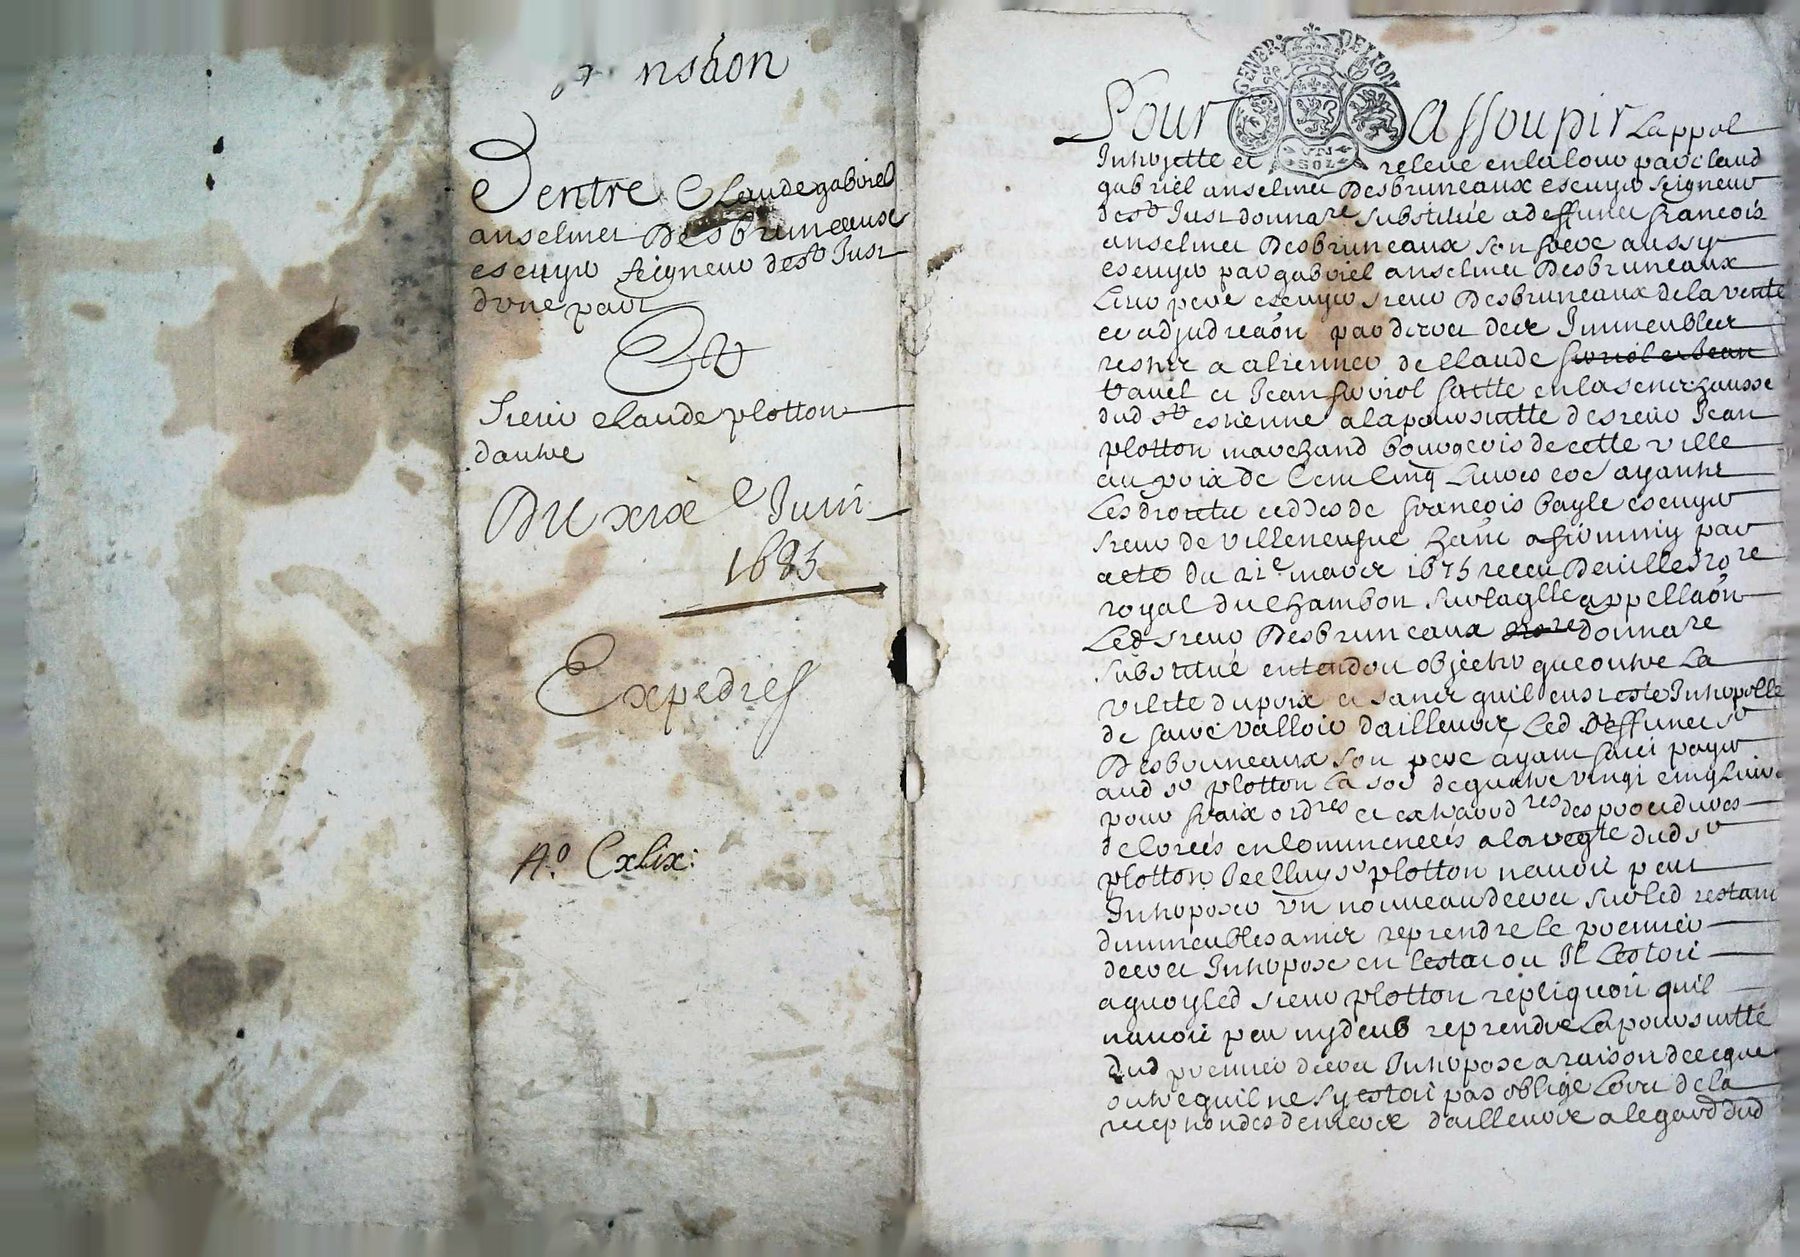 Dentre Claude gabriel
anselmet Desbruneaux
escuyer seigneur de st Just
d'une part
Et
Sieur Claude plotton
dautre
Du xixe Juin
1685
Expedies
No Cxlix:
GENER DE LYON
VN
SOL
Pour assoupir Lappel
Interjette et releve en la Cour par claud
gabriel anselmet Desbruneaux escuyer seigneur
de st Just donnare substitue a deffunct francois
anselmet Desbruneaux son frere aussy
escuyer par gabriel anselmet Desbruneaux
Leur pere escuyer sieur Desbruneaux de la vente
et adjudicaon par decret des Immeubles
restes a aliener de Claude
et Jean faitte en la senechaussee
dud st estienne a la poursuitte de sieur Jean
plotton marchand bourgeois de cette ville
au prix de Cent Cinq Livres ayant
Les droits ceddes de francois bayle escuyer
sieur de villeneufve par
acte du 21e mars 1675 receu Deville nore
royal du Chambon sur laqlle appellaon
Led sieur Desbruneaux donnare
substitue entendoit objecter que outre La
vilite du prix et sans quil eust este Interpelle
de faire valloir dailleurs Led deffunct sr
Desbruneaux son pere ayant faict payer
aud sr plotton La so de quatre vingt cinq livres
pour fraix ordres et extraordres des procedures
de Crees encommencees a la reqte dud sr
plotton Icelluy sr plotton navoit peut
Interposer un nouveau decret sur led restant
dimmeubles amis reprendre le premier
decret Interpose en lestat ou Il Lestoit
a quoy led sieur plotton repliquoit quil
navoit peu ny deub reprendre La poursuitte
dud premier decret Interpose a raison de ce que
outre quil ne sy estoit pas oblige Lors de la
reception des deniers dailleurs a legard dud